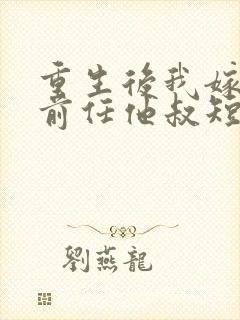 重生後我嫁
前任他叔短
劉燕龍